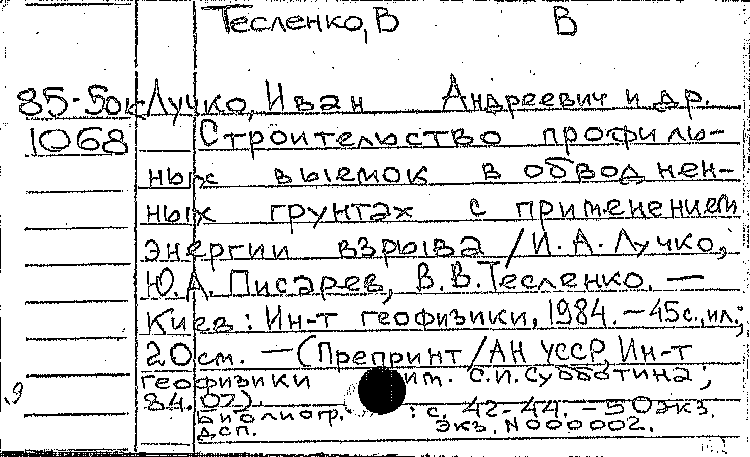 Тесленко, В В
85-5ок Лучко, Иван Андреевич и др.
1068 Строительство профиль-
ных выемок в обводнен-
ных грунтах с применением
энергии взрыва / И. А. Лучко,
Ю. А. Писарев, В. В. Тесленко. —
Киев : Ин-т геофизики, 1984. — 45 с., ил.;
20 см. — (Препринт / АН УССР, Ин-т
геофизики им. С. И. Субботина;
84.02).
Библиогр. : с. 42-44. — 50 экз.
Дсп. Экз. N 000002.